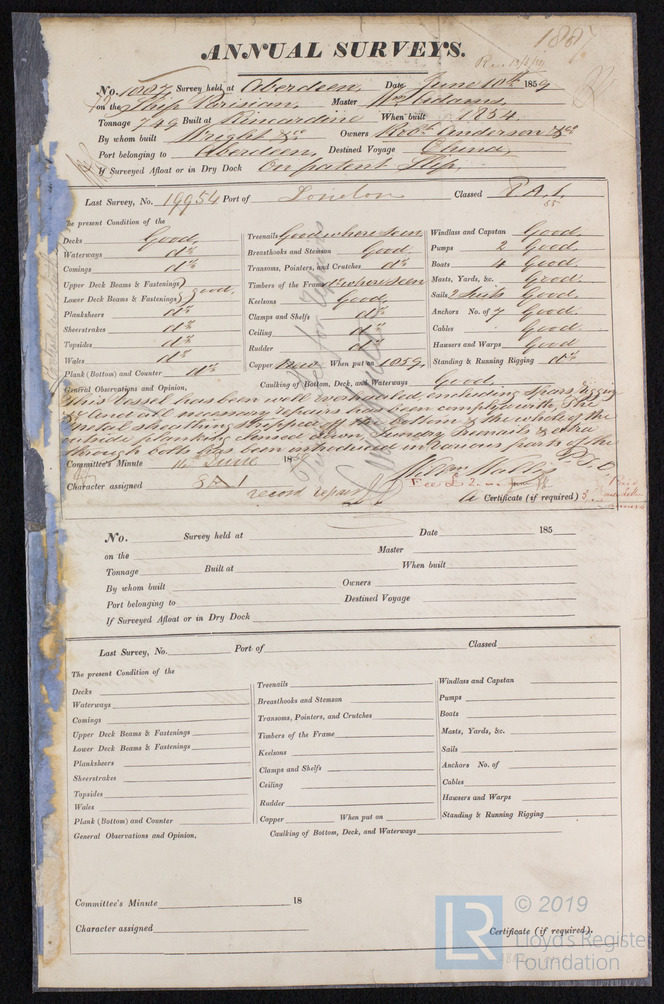 1887
ANNUAL SURVEYS.
No. 10187 Survey held at Aberdeen, Date June 10th 1859
on the Ship Parisian, Master Wm Adams,
Tonnage 749 Built at Kincardine When built 1854
By whom built Wright &Co Owners Robt Anderson &Co
Port belonging to Aberdeen, Destined Voyage China,
If Surveyed Afloat or in Dry Dock On patent Slip.
Last Survey, No. 19954 Port of London Classed 8 A. 1. 55
The present Condition of the
Decks Good.
Waterways do
Comings do
Upper Deck Beams & Fastenings
Lower Deck Beams & Fastenings } good.
Planksheers do
Sheerstrakes do
Topsides do
Wales do
Plank (Bottom) and Counter do
Treenails Good where seen
Breasthooks and Stemson Good
Transoms, Pointers, and Crutches do
Timbers of the Frame do where seen
Keelsons Good
Clamps and Shelfs do
Ceiling do
Rudder do
Copper New When put on 1859,
Windlass and Capstan Good.
Pumps 2 Good
Boats 4 Good
Masts, Yards, &c. Good.
Sails 2 Suits Good.
Anchors No. of 7 Good.
Cables Good.
Hawsers and Warps Good
Standing & Running Rigging do
General Observations and Opinion, Caulking of Bottom, Deck, and Waterways Good
This Vessel has been well overhauled including Spars, Rigging
&c And all necessary repairs has been complyd with, The
metal sheathing stripped off the bottom & the whole of the
outside planking dressed down, Sundry Treenails & extra
through bolts has been introduced in various parts of the
P.T.O
Committee's Minute 14 June 18
Character assigned 8 A 1
record repairs
Fee £ 2
Certificate (if required) 5
No. Survey held at Date 185
on the Master
Tonnage Built at When built
By whom built Owners
Port belonging to Destined Voyage
If Surveyed Afloat or in Dry Dock
Last Survey, No. Port of Classed
The present Condition of the
Decks
Waterways
Comings
Upper Deck Beams & Fastenings
Lower Deck Beams & Fastenings
Planksheers
Sheerstrakes
Topsides
Wales
Plank (Bottom) and Counter
Treenails
Breasthooks and Stemson
Transoms, Pointers, and Crutches
Timbers of the Frame
Keelsons
Clamps and Shelfs
Ceiling
Rudder
Copper When put on
Windlass and Capstan
Pumps
Boats
Masts, Yards, &c.
Sails
Anchors No. of
Cables
Hawsers and Warps
Standing & Running Rigging
General Observations and Opinion, Caulking of Bottom, Deck, and Waterways
Committee's Minute 18
Character assigned
Certificate (if required).
LR © 2019
Lloyd's Register
Foundation